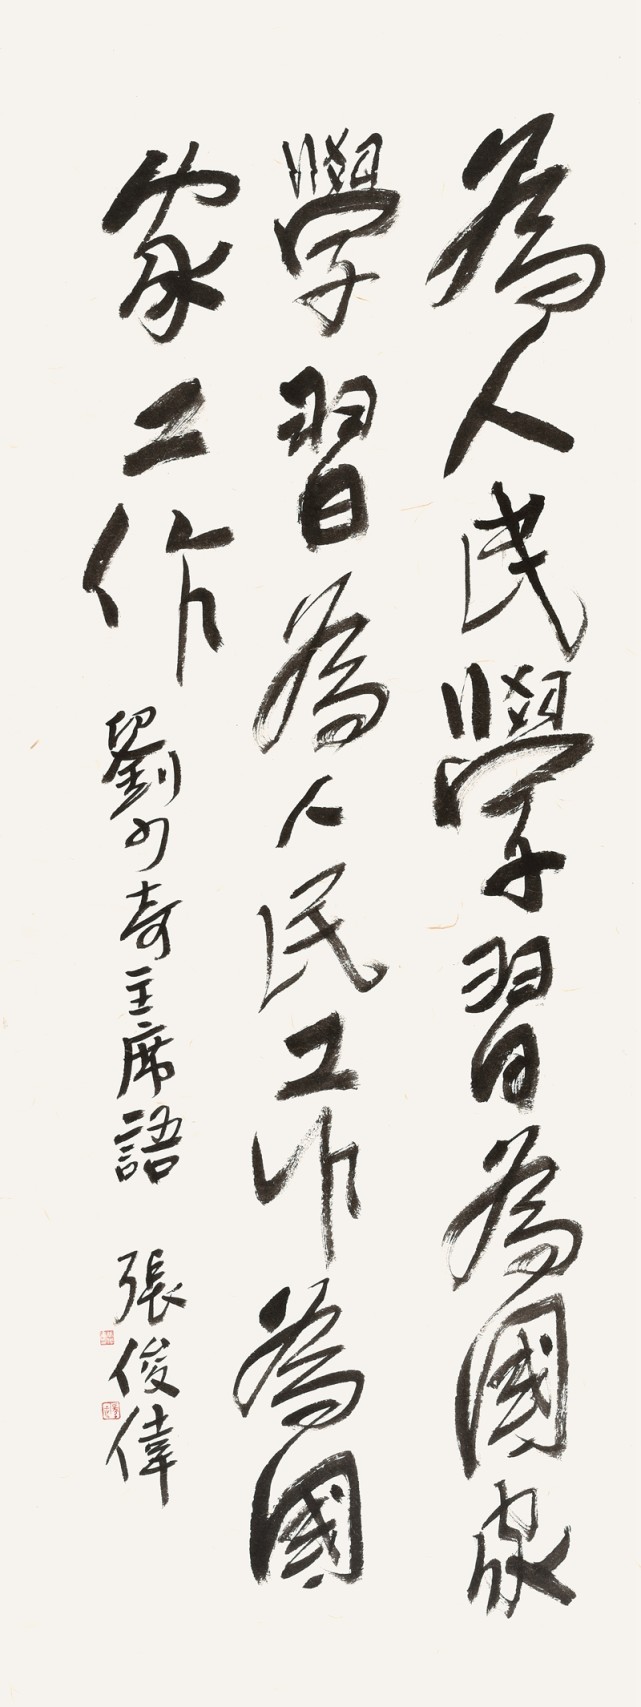 為人民學習為國家
學習為人民工作為國
家工作
劉少奇主席語 張俊偉